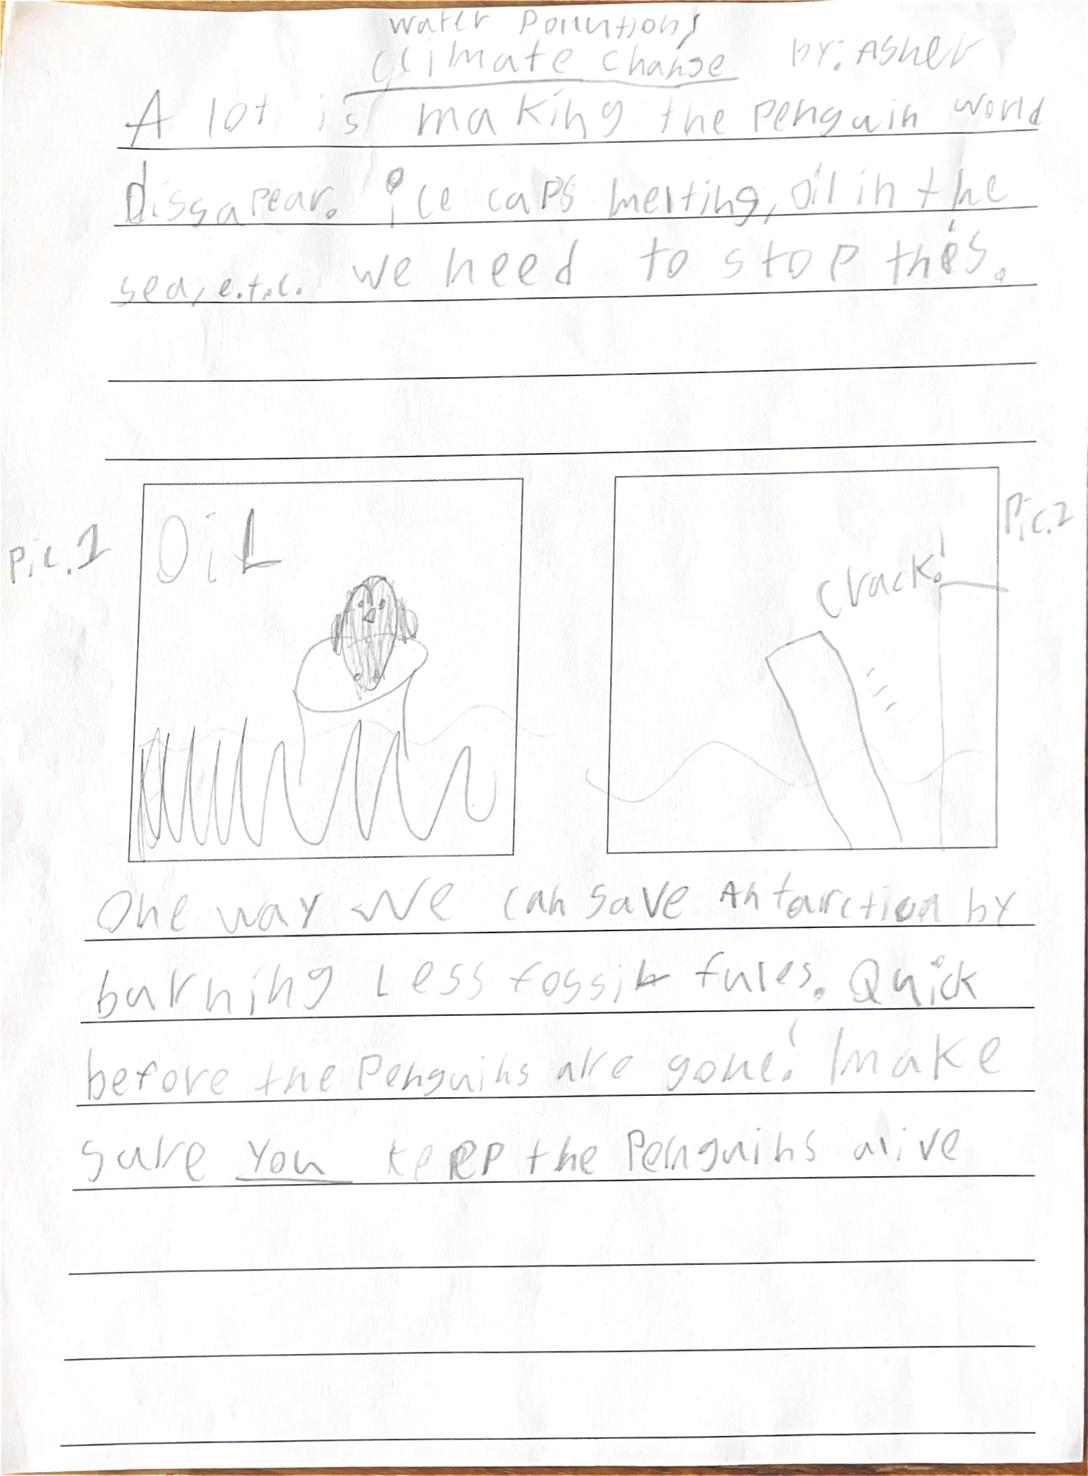 Water Pollution,
Climate Change by: Asher
A lot is making the Penguin world
dissapear. ice caps melting, oil in the
sea, e.t.c. we need to stop this.
Pic.1
OiL
Pic.2
Crack!
One way we can save Antarction by
burning Less fossil fules. Quick
before the Penguins are gone! make
sure You keep the Penguins alive